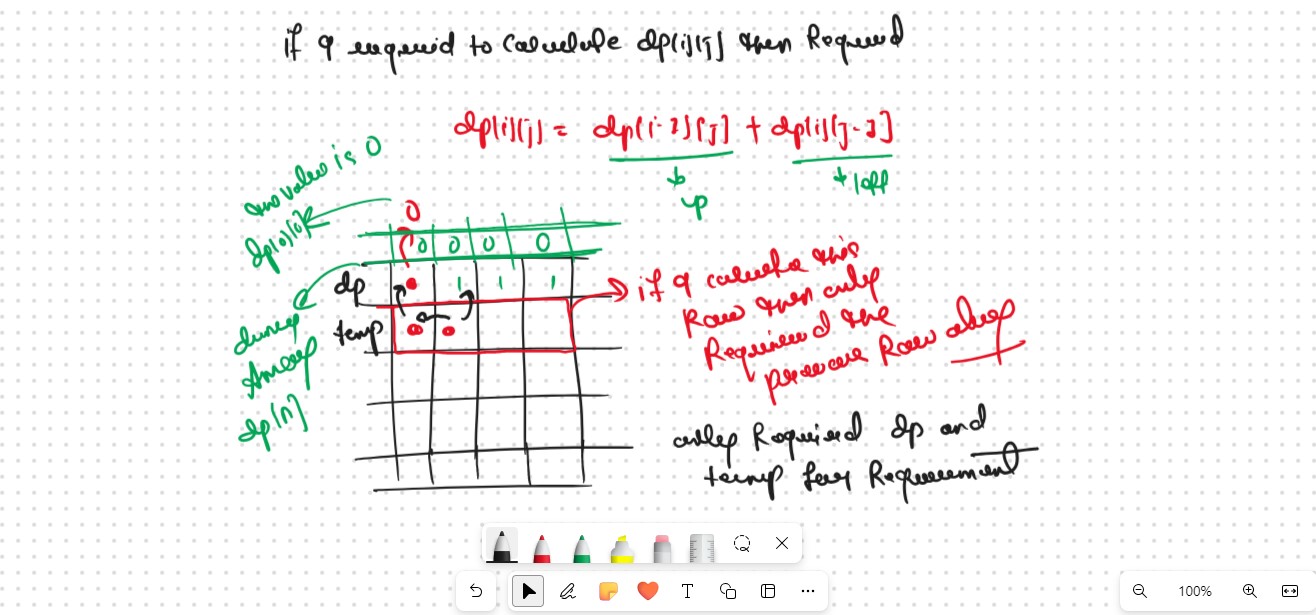 if I required to calculate dp[i][j] then Required
dp[i][j] = dp[i-1][j] + dp[i][j-1]
up
left
value is 0
dp[0][0]
0
0 0 0 0
dp
1 1 1
temp
dummy
Array
dp[n]
if I calculate this
Row then only
Required the
previous Row always
only Required dp and
temp for Requirement
T
100%